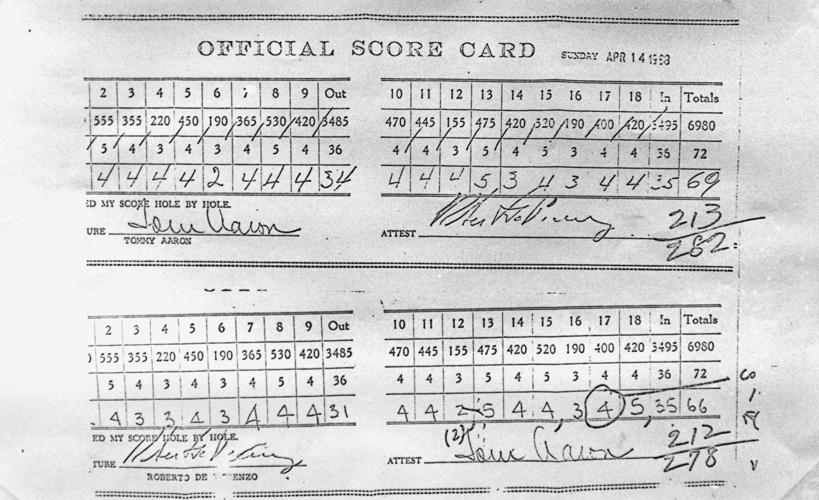 OFFICIAL SCORE CARD SUNDAY APR 14 1968
2 3 4 5 6 7 8 9 Out 10 11 12 13 14 15 16 17 18 In Totals
555 355 220 450 190 365 530 420 3485 470 445 155 475 420 520 190 400 420 3495 6980
5 4 3 4 3 4 5 4 36 4 4 3 5 4 5 3 4 4 36 72
4 4 4 4 2 4 4 4 34 4 4 4 5 3 4 3 4 4 35 69
ED MY SCORE HOLE BY HOLE.
URE Tom Aaron ATTEST 213
TOMMY AARON 282
2 3 4 5 6 7 8 9 Out 10 11 12 13 14 15 16 17 18 In Totals
555 355 220 450 190 365 530 420 3485 470 445 155 475 420 520 190 400 420 3495 6980
5 4 3 4 3 4 5 4 36 4 4 3 5 4 5 3 4 4 36 72
4 3 3 4 3 4 4 4 31 4 4 2 5 4 4 3 4 5 35 66
ED MY SCORE HOLE BY HOLE. (2) 212
TURE ATTEST Tom Aaron 278
ROBERTO DE ENZO